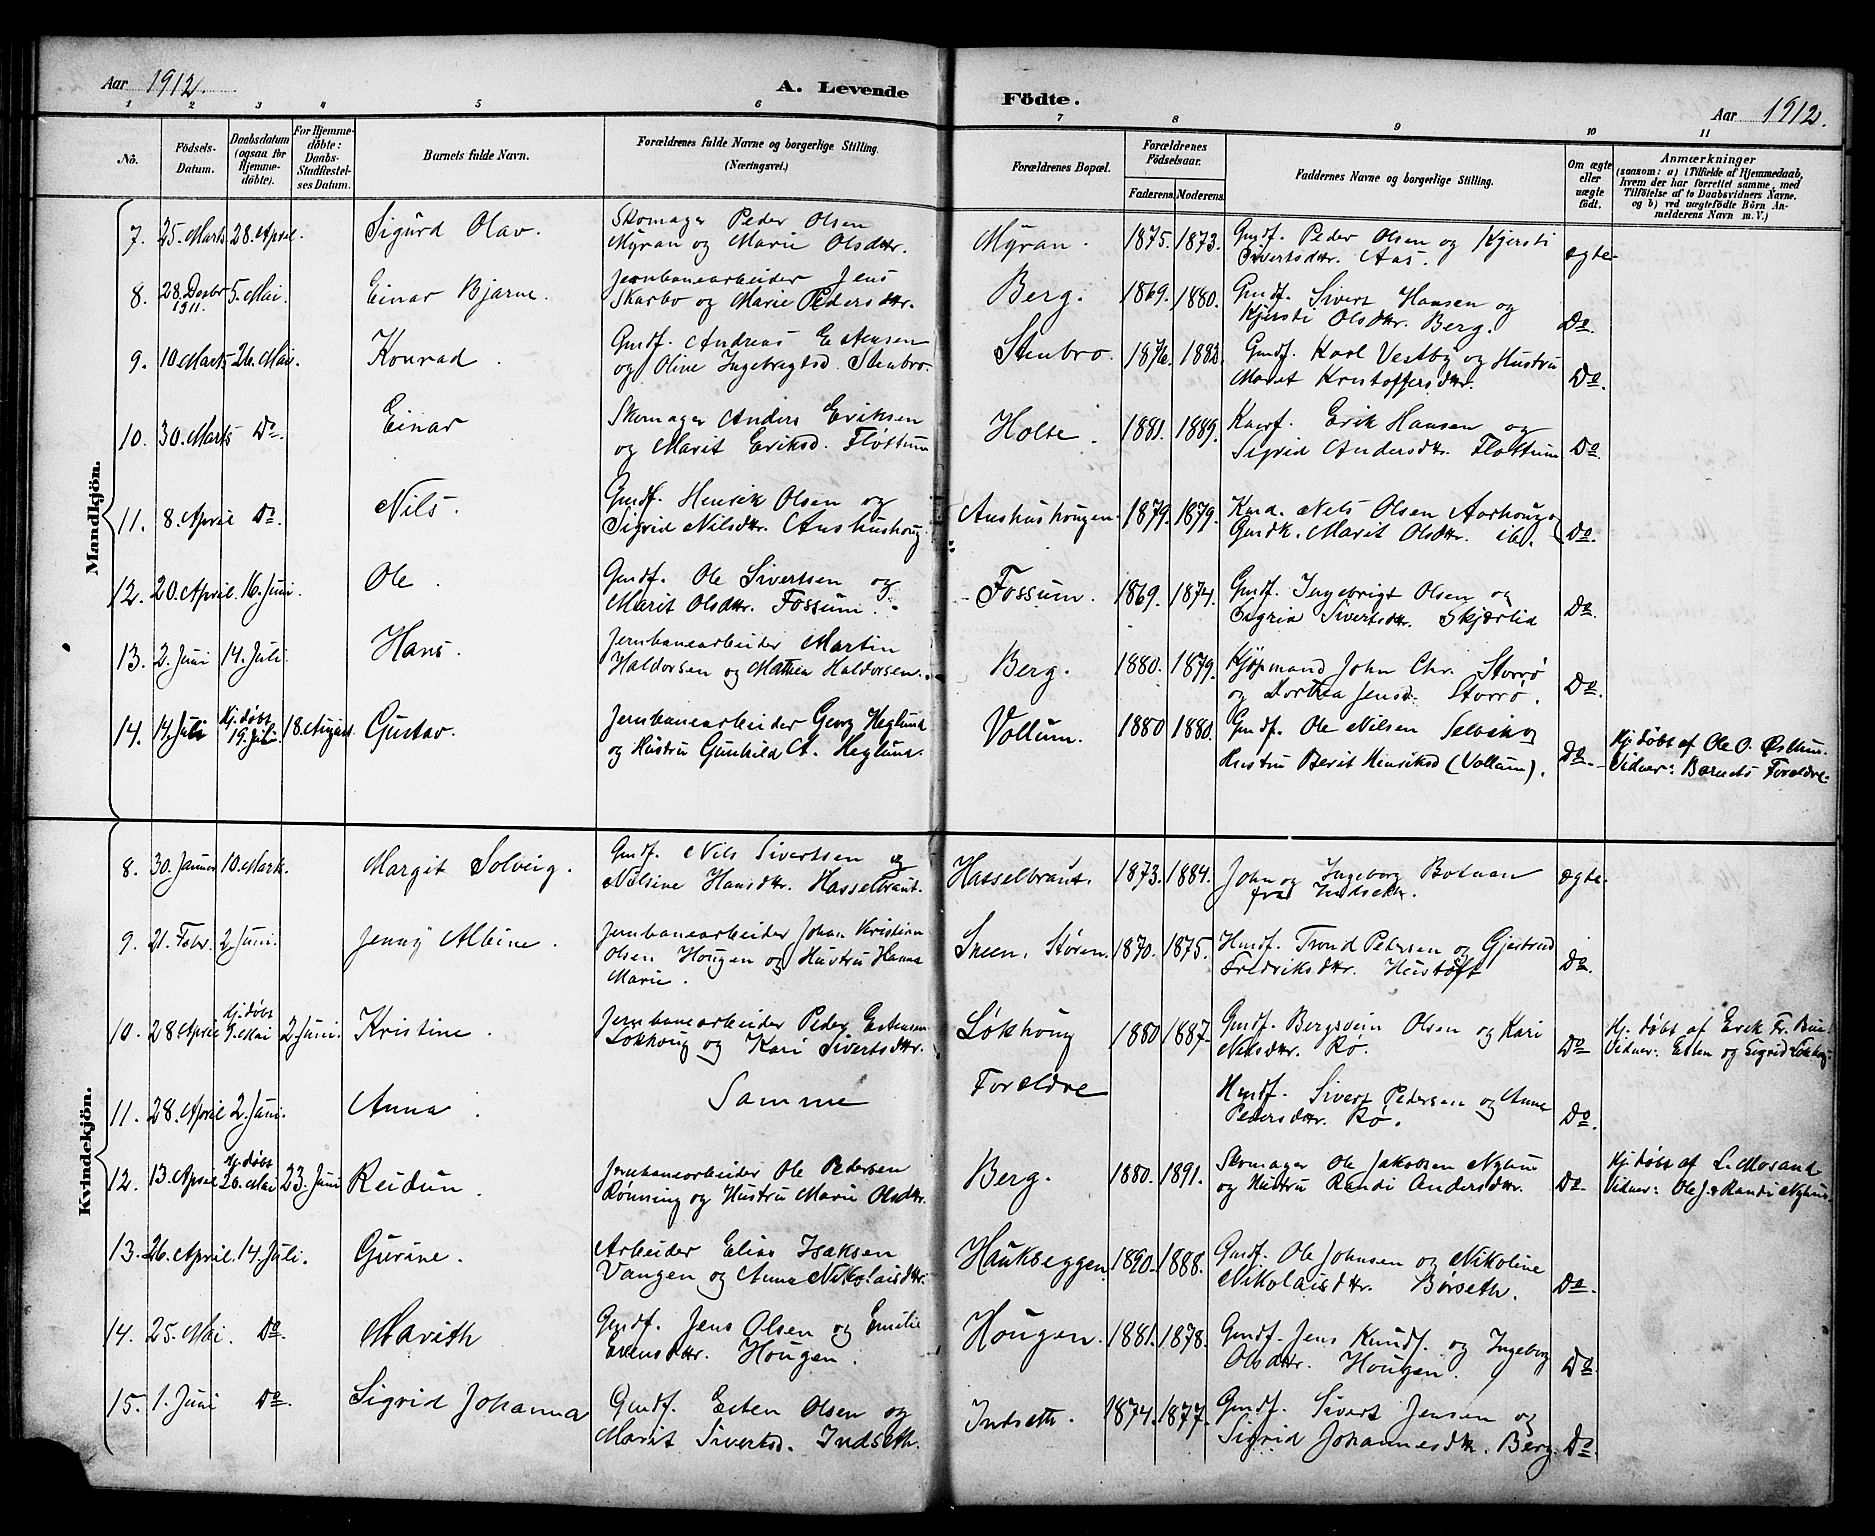 Aar 1912. A. Levende Födte. Aar 1912.
1 2 3 4 5 6 7 8 9 10 11
Nô. Födsels-Datum. Daabsdatum (ogsaa för Hjemme-döbte). For Hjemme-döbte: Daabs-Stadfæstel-ses Datum. Barnets fulde Navn. Forældrenes fulde Navne og borgerlige Stilling. (Næringsvei.) Forældrenes Bopæl. Forældrenes Födselsaar. Faderens. Moderens. Faddernes Navne og borgerlige Stilling. Om ægte eller uægte födt. Anmærkninger
(saasom: a) i Tilfælde af Hjemmedaab,
hvem der har forrettet samme, med
Tilföielse af to Daabsvidners Navne,
og b) ved uægtefödte Börn An-
melderens Navn m. V.)
Mandkjön.
7. 25. Marts 28. April. Sigurd Olav. Skomager Peder Olsen Myran. 1875. 1873. Gmdf. Peder Olsen og Kjersti ægte
Myran og Marie Olsdtr. Sivertsdtr. Aas.
8. 28. Decbr 1911. 5. Mai. Einar Bjarne. Jernbanearbeider Jens Berg. 1869. 1880. Gmdf. Sivert Hansen og Do.
Skarbo og Marie Pedersdtr. Kjersti Olsdtr. Berg.
9. 10 Marts 26. Mai. Konrad. Gmdf. Andreas Estensen Stenbro. 1876. 1882. Gmdf. Karl Vestby og Hustru Do.
og Oline Ingebrigtsd. Stenbro. Marit Kristoffersdtr.
10. 30. Marts Do. Einar Skomager Anders Eriksen Holte. 1881. 1889. Kaarf. Erik Hansen og Do.
og Marit Eriksd. Flottum Sigrid Andersdtr. Flottum
11. 8. April Do. Nils. Gmdf. Henrik Olsen og Aushushougen. 1879. 1879. Nils Olsen Do.
Sigrid Nilsdtr. Aushushoug. Gmdk. Marit Olsdtr. ibd.
12. 20. April. 16. Juni. Ole. Gmdf. Ole Sivertsen og Fossum. 1869. 1874. Gmdf. Ingebrigt Olsen og Do
Marit Olsdtr. Fossum. Sigrid Sivertsdtr. Skjærlid
13. 2. Juni 14. Juli. Hans. Jernbanearbeider Martin Berg. 1880. 1879. Kjøpmand John Chr. Storrø Do.
Haldorsen og Haldorsen. og Dorthea Jensd. Storrø.
14. 14. Juli Hj. døbt 19. Juli. 18. August Gustav. Jernbanearbeider Georg Heglund Vollum. 1880 1880. Gmdf. Ole Nilsen Selvik og Do. Hj. døbt af Ole O. Østhun.
og Hustru Gunhild A. Heglund. Hustru Berit Henriksd (Vollum). Vidner: Barnets Forældre.
Kvindekjön.
8. 30. Januar 10. Marts. Margit Solveig. Gmdf. Nils Sivertsen og Hasselbraut. 1873. 1884. John og Ingeborg Botnan ægte.
Nilsine Hansdtr. Hasselbraut. fra Indseth.
9. 21. Febr. 2. Juni. Jenny Albine. Jernbanearbeider Johan Kristian Støren. 1870. 1875. Husmf. Trond Pedersen og Gjertrud Do.
Olsen Hougen og Hustru Hanna Fredriksdtr. Hustøft
Marie.
10. 28 April Hj. døbt 9. Mai 2. Juni. Kristine. Jernbanearbeider Peder Estensen Løkhoug 1880 1887. Gmdf. Bergsvein Olsen og Kari Do Hj. døbt af Erik Fr. Bua
Løkhoug og Kari Sivertsdtr. Nilsdtr. Rø. Vidner: Esten og Sigrid Løkhoug
11. 28. April 2. Juni. Anna. Samme Forældre Husmf. Sivert Pedersen og Anne Do.
Pedersdtr. Rø.
12. 13. April Hj. døbt 26. Mai 23. Juni Reidun. Jernbanearbeider Ole Pedersen Berg. 1880. 1891. Skomager Ole Jakobsen Nyhus Do. Hj. døbt af L. Mosand
Rønning og Hustru Marie Olsdtr. og Hustru Randi Andersdtr. Vidner: Ole J. & Randi Nyhus.
13. 26. April. 14. Juli. Gurine. Arbeider Elias Isaksen Haukseggen. 1890. 1888. Gmdf. Ole Johnsen og Nikoline Do.
Vangen og Anna Nikolaisdtr. Nikolaisdtr. Børseth.
14. 25. Mai. Do. Marith Gmdf. Jens Olsen og Emilie Hougen. 1881. 1878. Gmdf. Jens Knudf. og Ingeborg Do.
Hougen. Olsdtr. Hougen.
15. 1. Juni Do. Sigrid Johanna Gmdf. Esten Olsen og Indseth. 1874. 1877. Gmdf. Sivert Jensen og Do.
Marit Sivertsd. Indseth. Sigrid Johannesdtr. Berg.